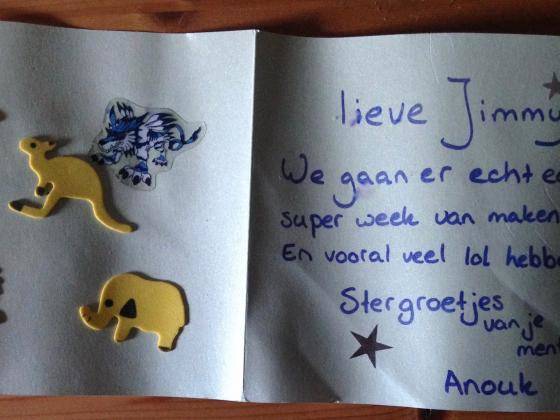 lieve Jimmy
We gaan er echt
super week van maken
En vooral veel lol
Stergroetjes
van je
Anouk